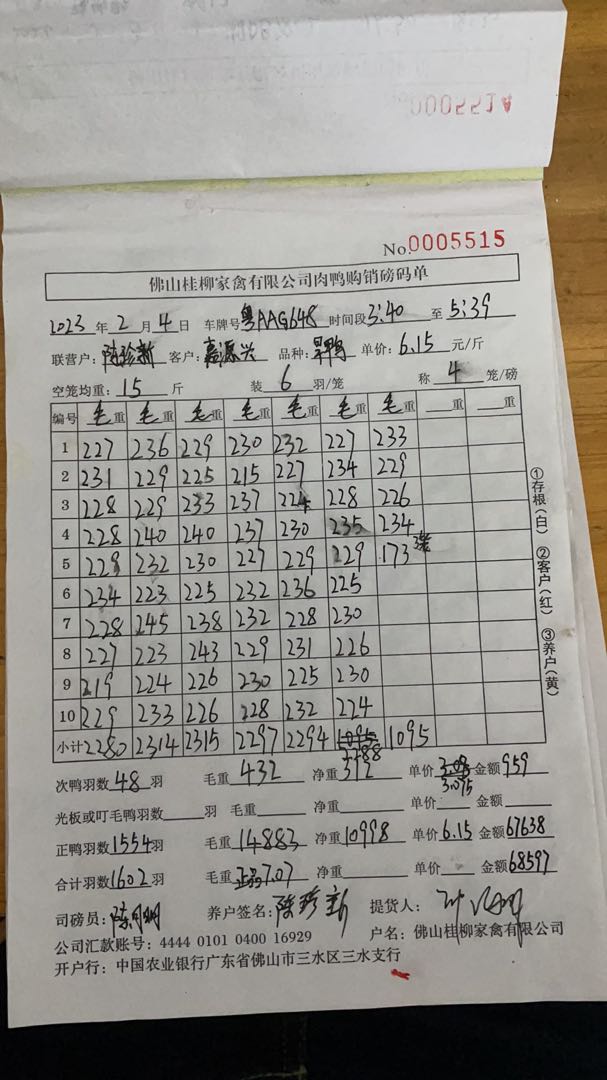 No.0005515
佛山桂柳家禽有限公司肉鸭购销磅码单
2023 年 2 月 4 日 车牌号 粤AAG648 时间段 3:40 至 5:39
联营户: 陈珍新 客户: 嘉源兴 品种: 旱鸭 单价: 6.15 元/斤
空笼均重: 15 斤 装 6 羽/笼 称 4 笼/磅
编号 毛重 毛重 毛重 毛重 毛重 毛重 毛重 重 重
1 227 236 229 230 232 227 233
2 231 229 225 215 227 234 229
3 228 229 233 237 224 228 226
4 228 240 240 237 230 235 234
5 229 232 230 227 229 229 173
6 234 223 225 232 236 225
7 228 245 238 232 228 230
8 227 223 243 229 231 226
9 219 224 226 230 225 230
10 229 233 226 228 232 224
小计 2280 2314 2315 2297 2294 2288 1095
①存根(白) ②客户(红) ③养户(黄)
次鸭羽数 48 羽 毛重 432 净重 312 单价 3.075 金额 959
光板或叮毛鸭羽数 羽 毛重 净重 单价 金额
正鸭羽数 1554 羽 毛重 14883 净重 10998 单价 6.15 金额 67638
合计羽数 1602 羽 毛重 7.07 净重 单价 金额 68597
司磅员: 养户签名: 陈珍新 提货人:
公司汇款账号: 4444 0101 0400 16929 户名: 佛山桂柳家禽有限公司
开户行: 中国农业银行广东省佛山市三水区三水支行